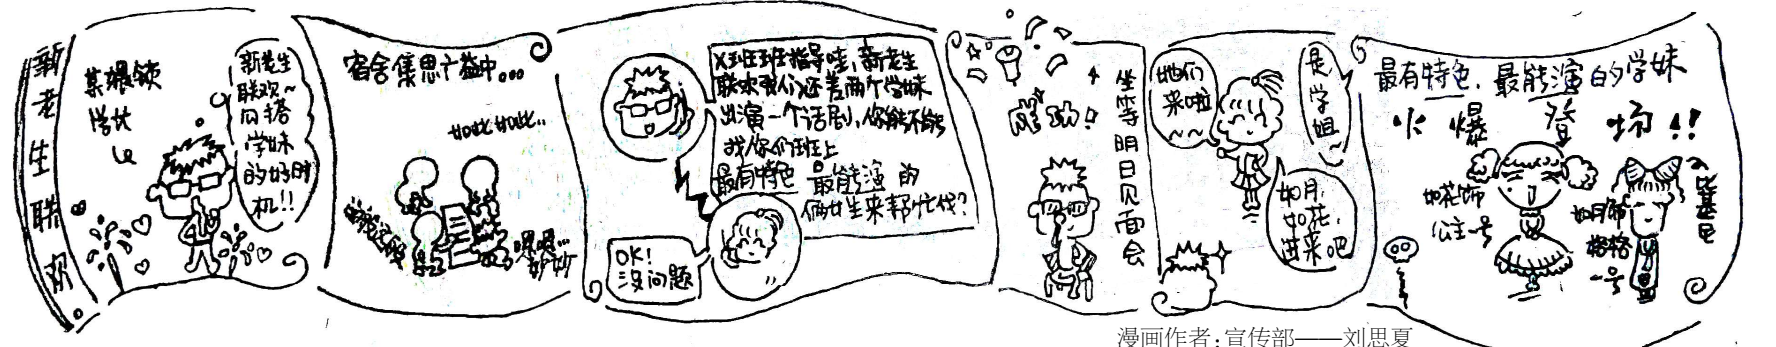 新老生联欢
某猥锁
学长
新老生
联欢~
勾搭
学妹
的好时
机!!
宿舍集思广益中...
如此如此..
嗯嗯...
妙妙
X班班指导哇,新老生
联欢我们还差两个学妹
出演一个话剧,你能不能
找你们班上
最有特色 最能演的
俩女生来帮忙伐?
OK!
没问题
成功!
坐等明日见面会
她们
来啦
~~
是学姐
如月,
如花,
进来吧
最有特色,最能演的学妹
火爆登场!!
如花饰
公主一号
如月饰
格格
一号
漫画作者:宣传部——刘思夏